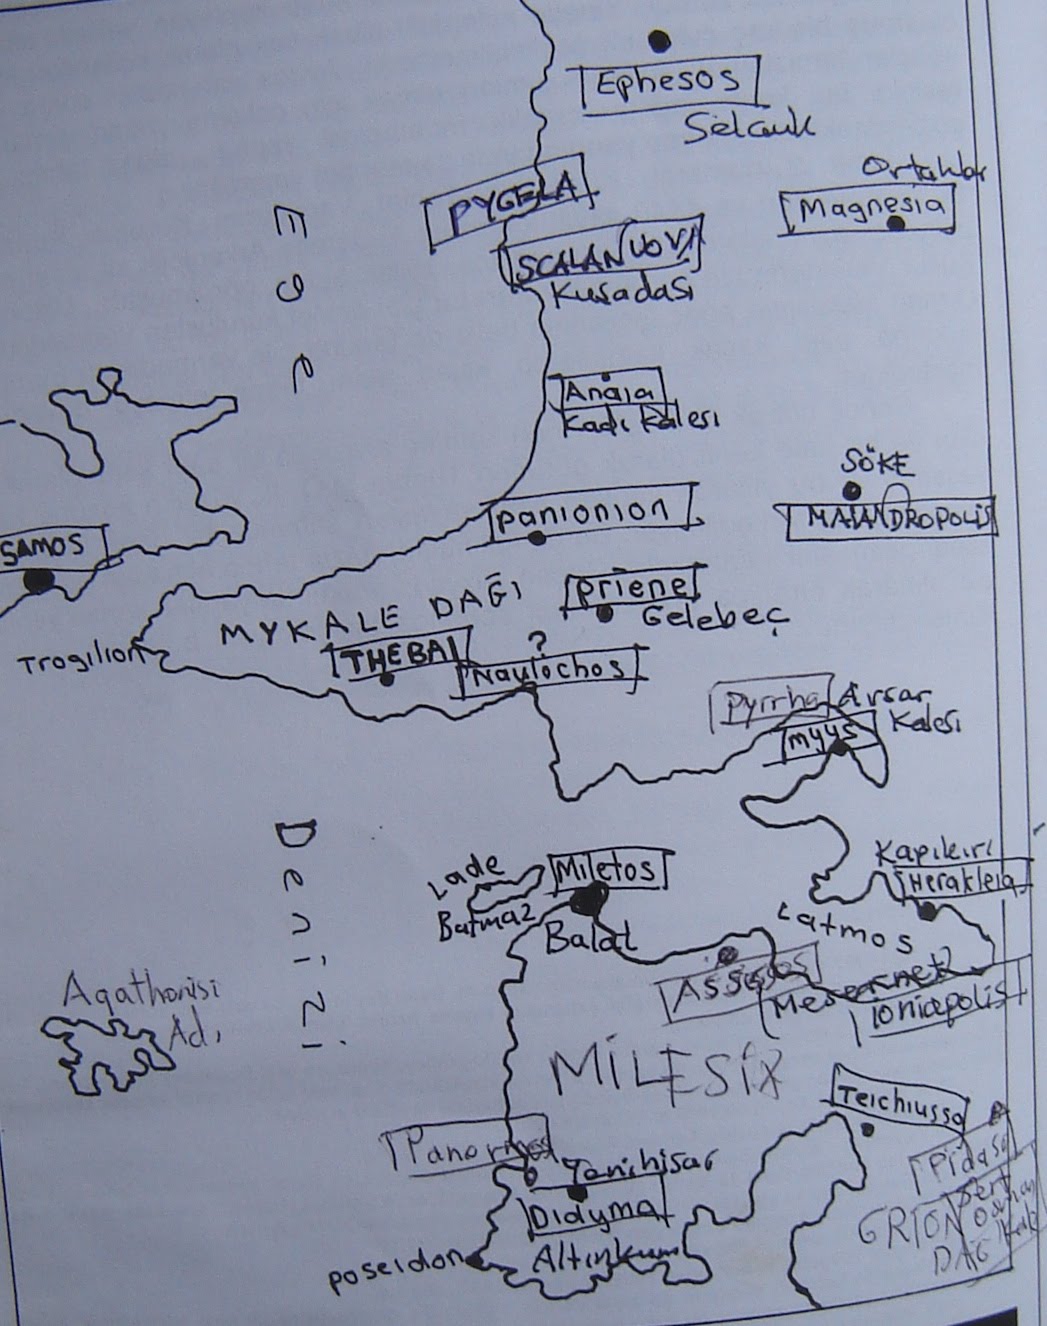 Ephesos
Selcuk
PYGELA
Magnesia
SCALANUOVA
Kusadası
E
G
e
Anaia
Kadı Kalesı
SÖKE
MAIANDROPOLIS
panionion
SAMOS
MYKALE DAĞI
priene
Gelebeç
Trogilion
THEBAI
?
Naulochos
Pyrrha
Avsar
Kalesi
myus
D
e
n
i
z
i
Lade
Batmaz
Miletos
Balat
Kapıkırı
Herakleia
Latmos
Assesos
Ioniapolis
Agathonisi
Ad.
MİLESİA
Teichiussa
Panormos
Yenihisar
Didyma
Altınkum
poseidon
Pidasa
GRION
DAĞ